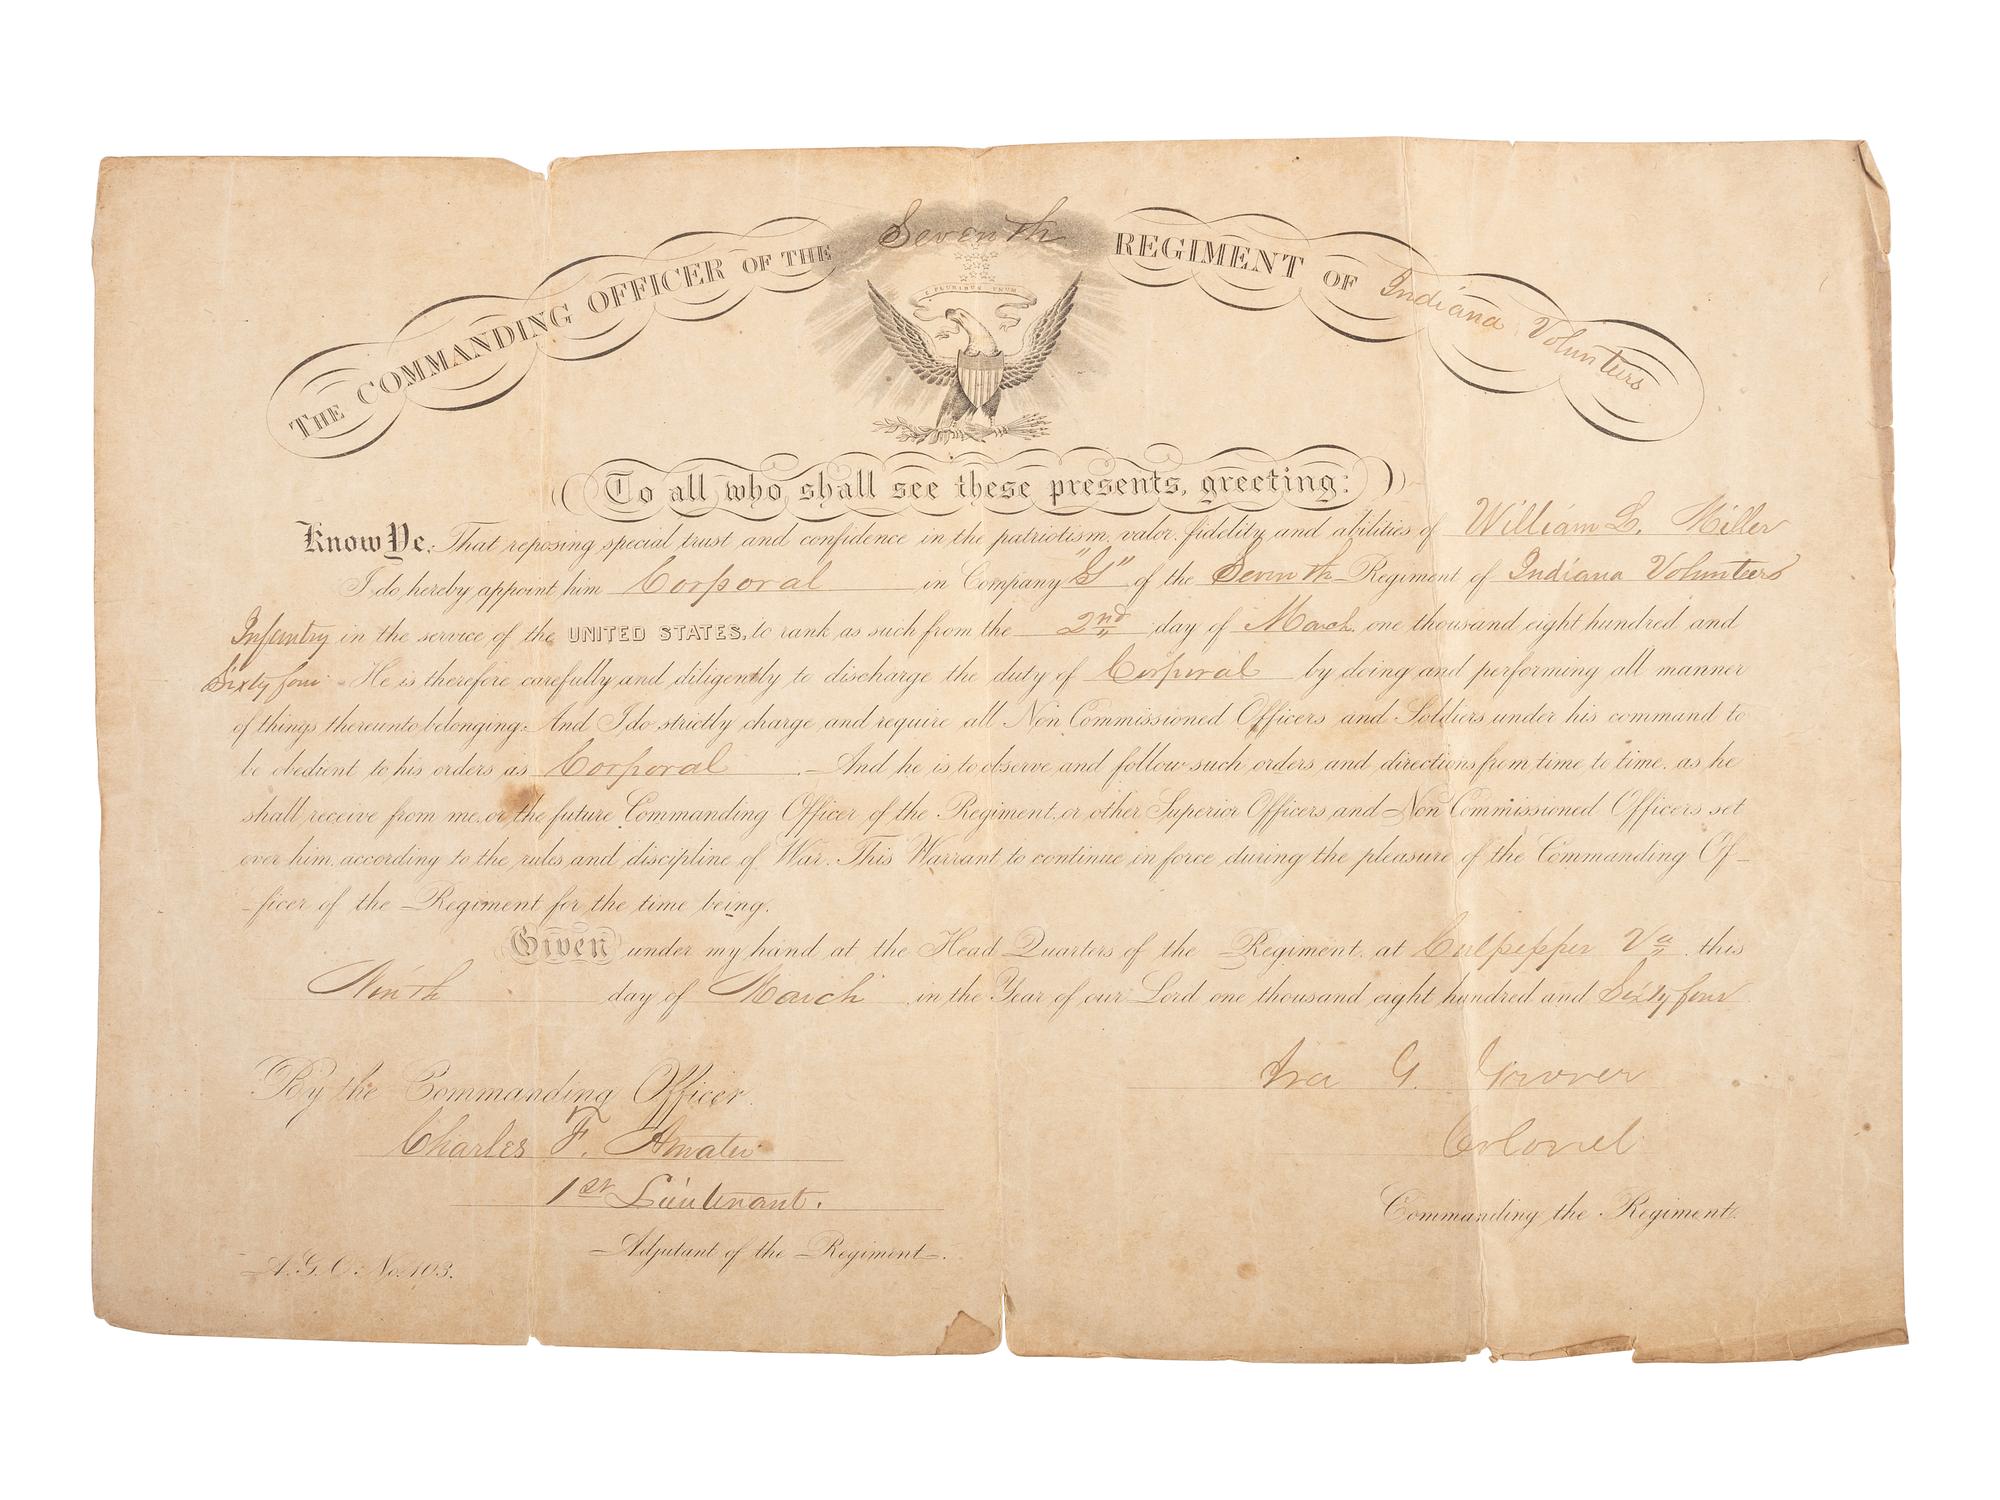 THE COMMANDING OFFICER OF THE Seventh REGIMENT OF Indiana Volunteers
E PLURIBUS UNUM
To all who shall see these presents, greeting:
Know Ye, That reposing special trust and confidence in the patriotism, valor, fidelity and abilities of William L. Miller
I do hereby appoint him Corporal in Company "G" of the Seventh Regiment of Indiana Volunteers
Infantry in the service of the UNITED STATES, to rank as such from the 2nd day of March one thousand eight hundred and
Sixty four He is therefore carefully and diligently to discharge the duty of Corporal by doing and performing all manner
of things thereunto belonging. And I do strictly charge and require all Non Commissioned Officers and Soldiers under his command to
be obedient to his orders as Corporal. And he is to observe and follow such orders and directions from time to time, as he
shall receive from me, or the future Commanding Officer of the Regiment, or other Superior Officers and Non Commissioned Officers set
over him, according to the rules and discipline of War. This Warrant to continue in force during the pleasure of the Commanding Of-
-ficer of the Regiment for the time being.
Given under my hand at the Head Quarters of the Regiment, at Culpepper Va this
Ninth day of March in the Year of our Lord one thousand eight hundred and Sixty four
By the Commanding Officer.
Ira G. Grover
Colonel
Commanding the Regiment.
Charles F.
1st Lieutenant.
Adjutant of the Regiment.
A.G.O. No. 103.